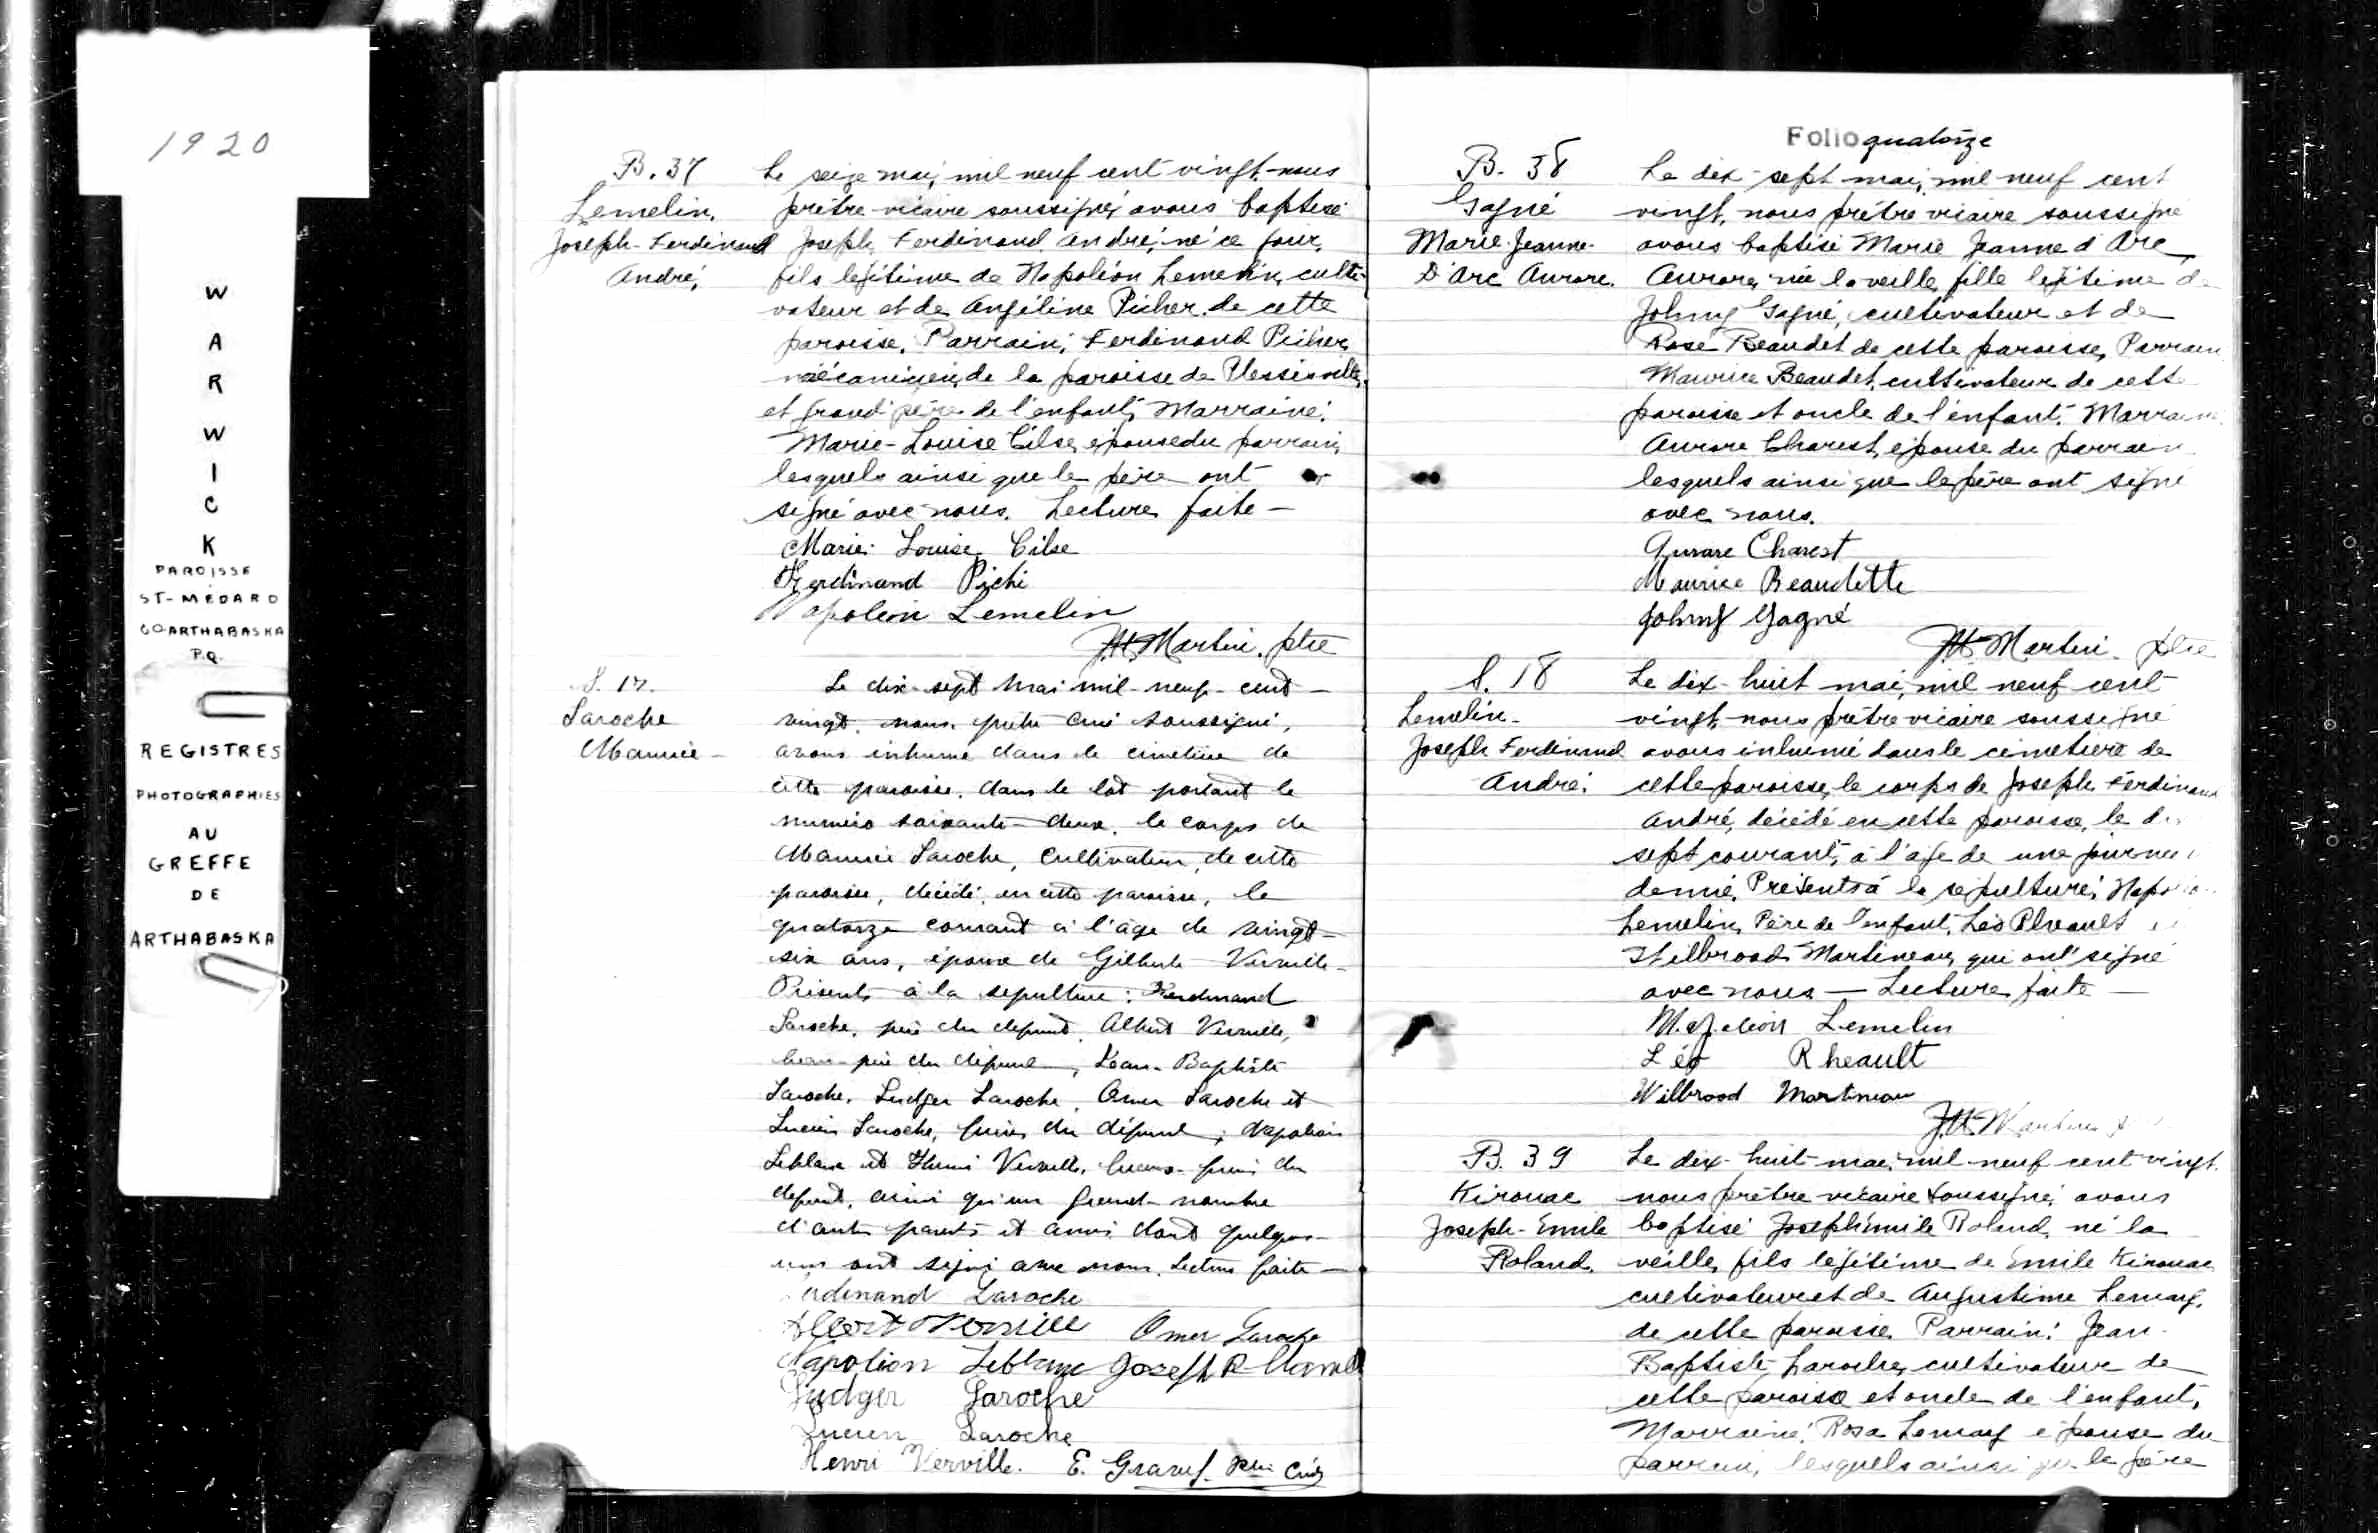 1920
W
A
R
W
I
C
K
PAROISSE
ST-MÉDARD
CO ARTHABASKA
P.Q.
REGISTRES
PHOTOGRAPHIES
AU
GREFFE
DE
ARTHABASKA
B. 37
Lemelin,
Joseph-Ferdinand
André,
Le seize mai, mil neuf cent vingt, nous
prêtre vicaire soussigné, avons baptisé
Joseph Ferdinand André, né ce jour,
fils légitime de Napoléon Lemelin, culti-
vateur et de Angéline Picher, de cette
paroisse. Parrain; Ferdinand Picher,
mécanicien, de la paroisse de Plessisville,
et grand père de l'enfant, Marraine:
Marie-Louise Cilse, épouse du parrain,
lesquels ainsi que le père ont
signé avec nous. Lecture faite —
Marie Louise Cilse
Ferdinand Piché
Napoléon Lemelin
J.H. Martin. ptre
S. 17.
Laroche
Maurice -
Le dix-sept mai mil-neuf-cent-
vingt, nous, prêtre curé soussigné,
avons inhumé dans le cimetière de
cette paroisse, dans le lot portant le
numéro soixante-deux, le corps de
Maurice Laroche, Cultivateur, de cette
paroisse, décédé, en cette paroisse, le
quatorze courant à l'âge de vingt-
six ans, époux de Gilberte Verville -
Présents à la sépulture: Ferdinand
Laroche, père du défunt, Albert Verville,
beau-père du défunt, Jean-Baptiste
Laroche, Ludger Laroche, Omer Laroche et
Lucien Laroche, frères du défunt; Napoléon
Leblanc et Henri Verville, beaux-frères du
défunt, ainsi qu'un grand-nombre
d'autres parents et amis dont quelques-
uns ont signé avec nous. Lecture faite —
Ferdinand Laroche
Albert Verville Omer Laroche
Napoléon Leblanc Joseph R.
Ludger Laroche
Lucien Laroche
Henri Verville. E. Gravel Curé
Folio quatorze
B. 38
Gagné
Marie-Jeanne-
D'Arc Aurore.
Le dix-sept mai, mil neuf cent
vingt, nous prêtre vicaire soussigné
avons baptisé Marie Jeanne d'Arc
Aurore, née la veille, fille légitime de
Johny Gagné, cultivateur et de
Rose Beaudet de cette paroisse, Parrain
Maurice Beaudet, cultivateur de cette
paroisse et oncle de l'enfant. Marraine
Aurore Charest, épouse du parrain
lesquels ainsi que le père ont signé
avec nous.
Aurore Charest
Maurice Beaudette
Johny Gagné
J.H. Martin. ptre
S. 18
Lemelin-
Joseph Ferdinand
André.
Le dix-huit mai, mil neuf cent
vingt, nous prêtre vicaire soussigné
avons inhumé dans le cimetière de
cette paroisse, le corps de Joseph Ferdinand
André, décédé en cette paroisse, le dix
sept courant, à l'âge de une journée
demie. Présents à la sépulture; Napoléon
Lemelin, Père de l'enfant, Léo Rheault
Wilbrood Martineau, qui ont signé
avec nous — Lecture faite —
Napoléon Lemelin
Léo Rheault
Wilbrood Martineau
J.H. Martin
B. 39
Kirouac
Joseph-Emile
Roland.
Le dix-huit mai, mil neuf cent vingt,
nous prêtre vicaire soussigné, avons
baptisé Joseph Émile Roland, né la
veille, fils légitime de Émile Kirouac
cultivateur et de Augustine Lemay,
de cette paroisse. Parrain: Jean-
Baptiste Laroche, cultivateur de
cette paroisse et oncle de l'enfant,
Marraine: Rosa Lemay épouse du
parrain, lesquels ainsi que le père